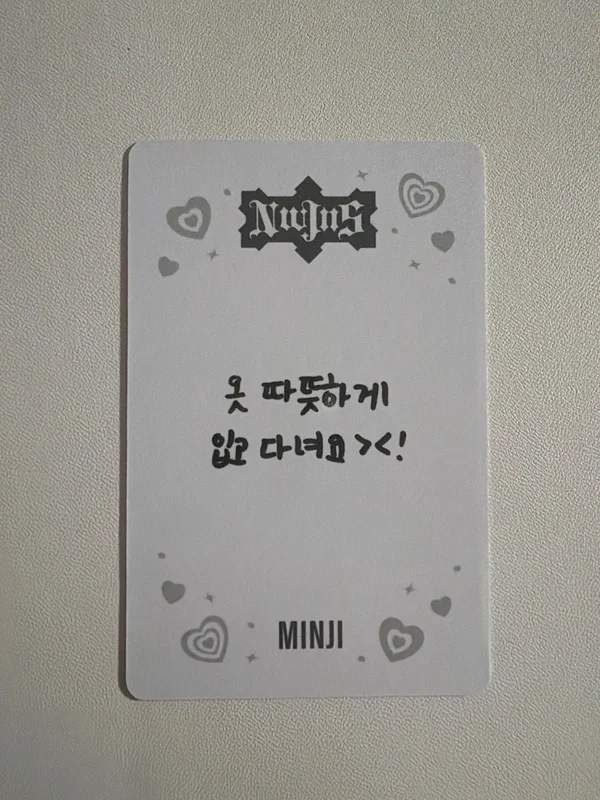 NewJeans
옷 따뜻하게
입고 다녀요 ><!
MINJI